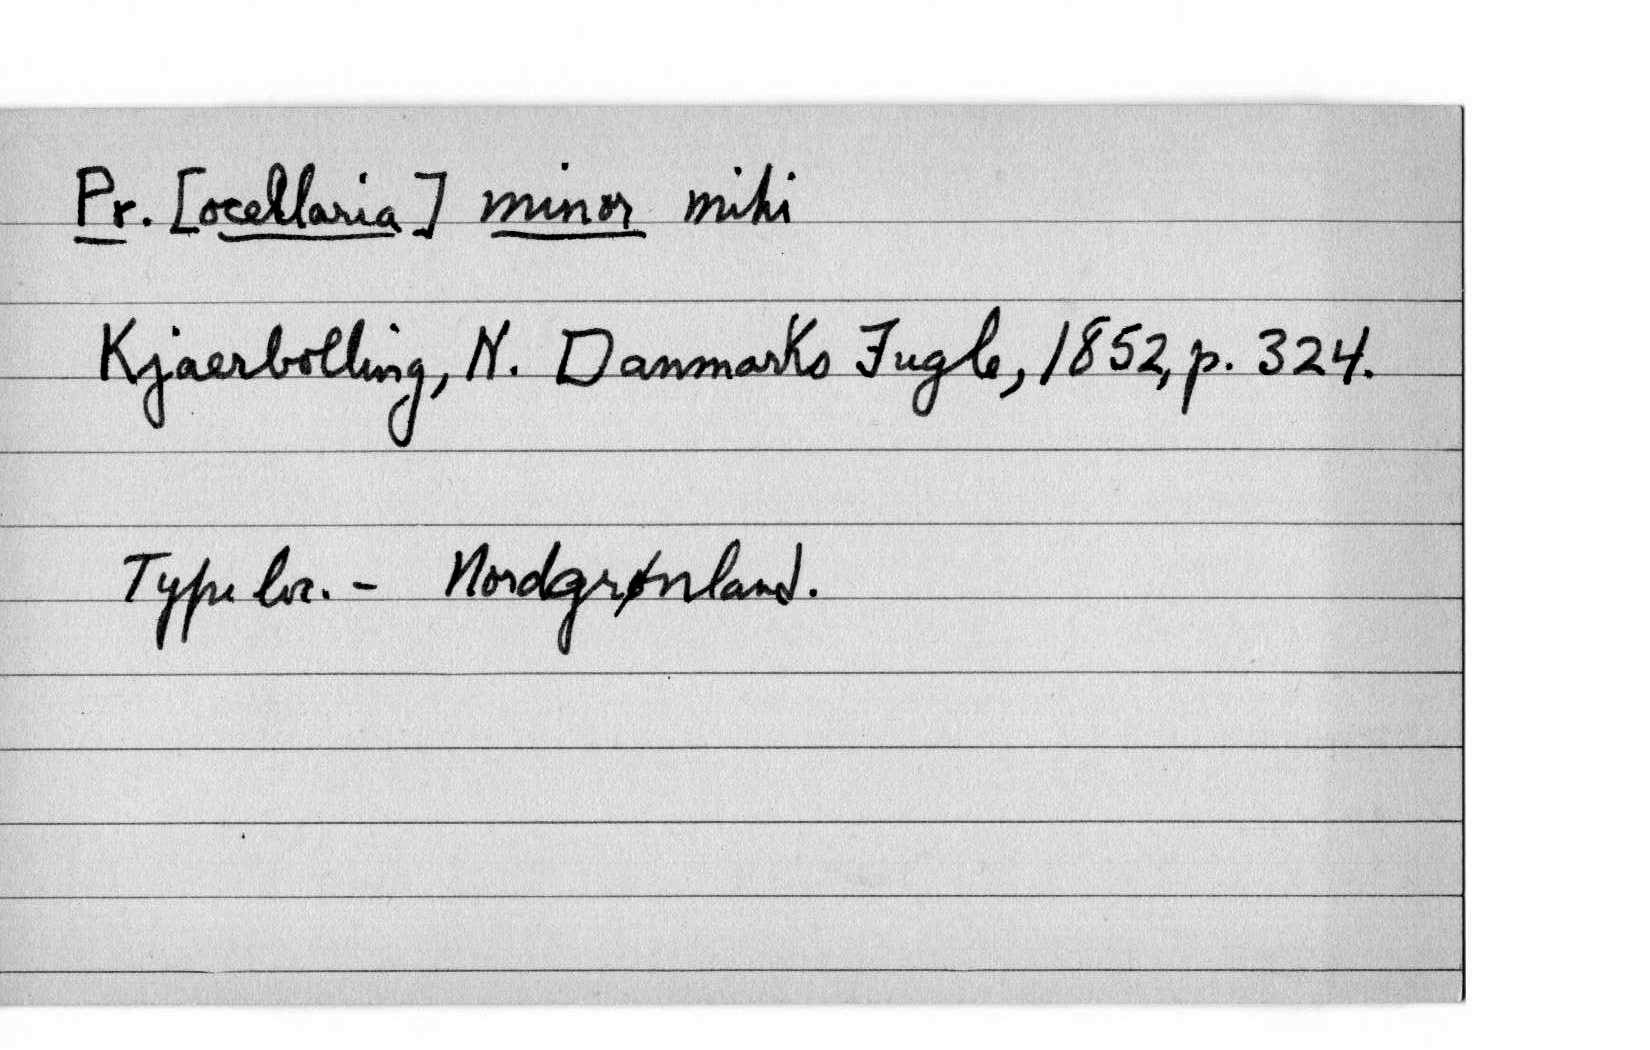 Pr. [ocellaria] minor mihi
Kjaerbolling, N. Danmarks Fugle, 1852, p. 324.
Type loc. - Nordgrønland.